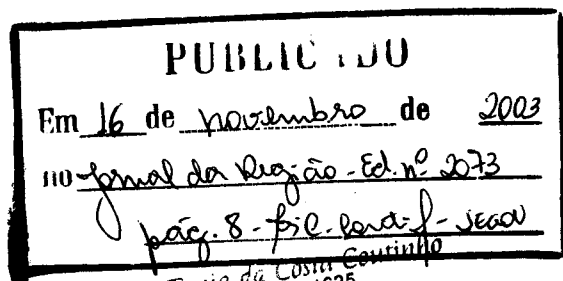 PUBLICADO
Em 16 de novembro de 2003
no Jornal da Região - Ed. nº 2073
pág. 8 - SEGOV
da Costa Coutinho